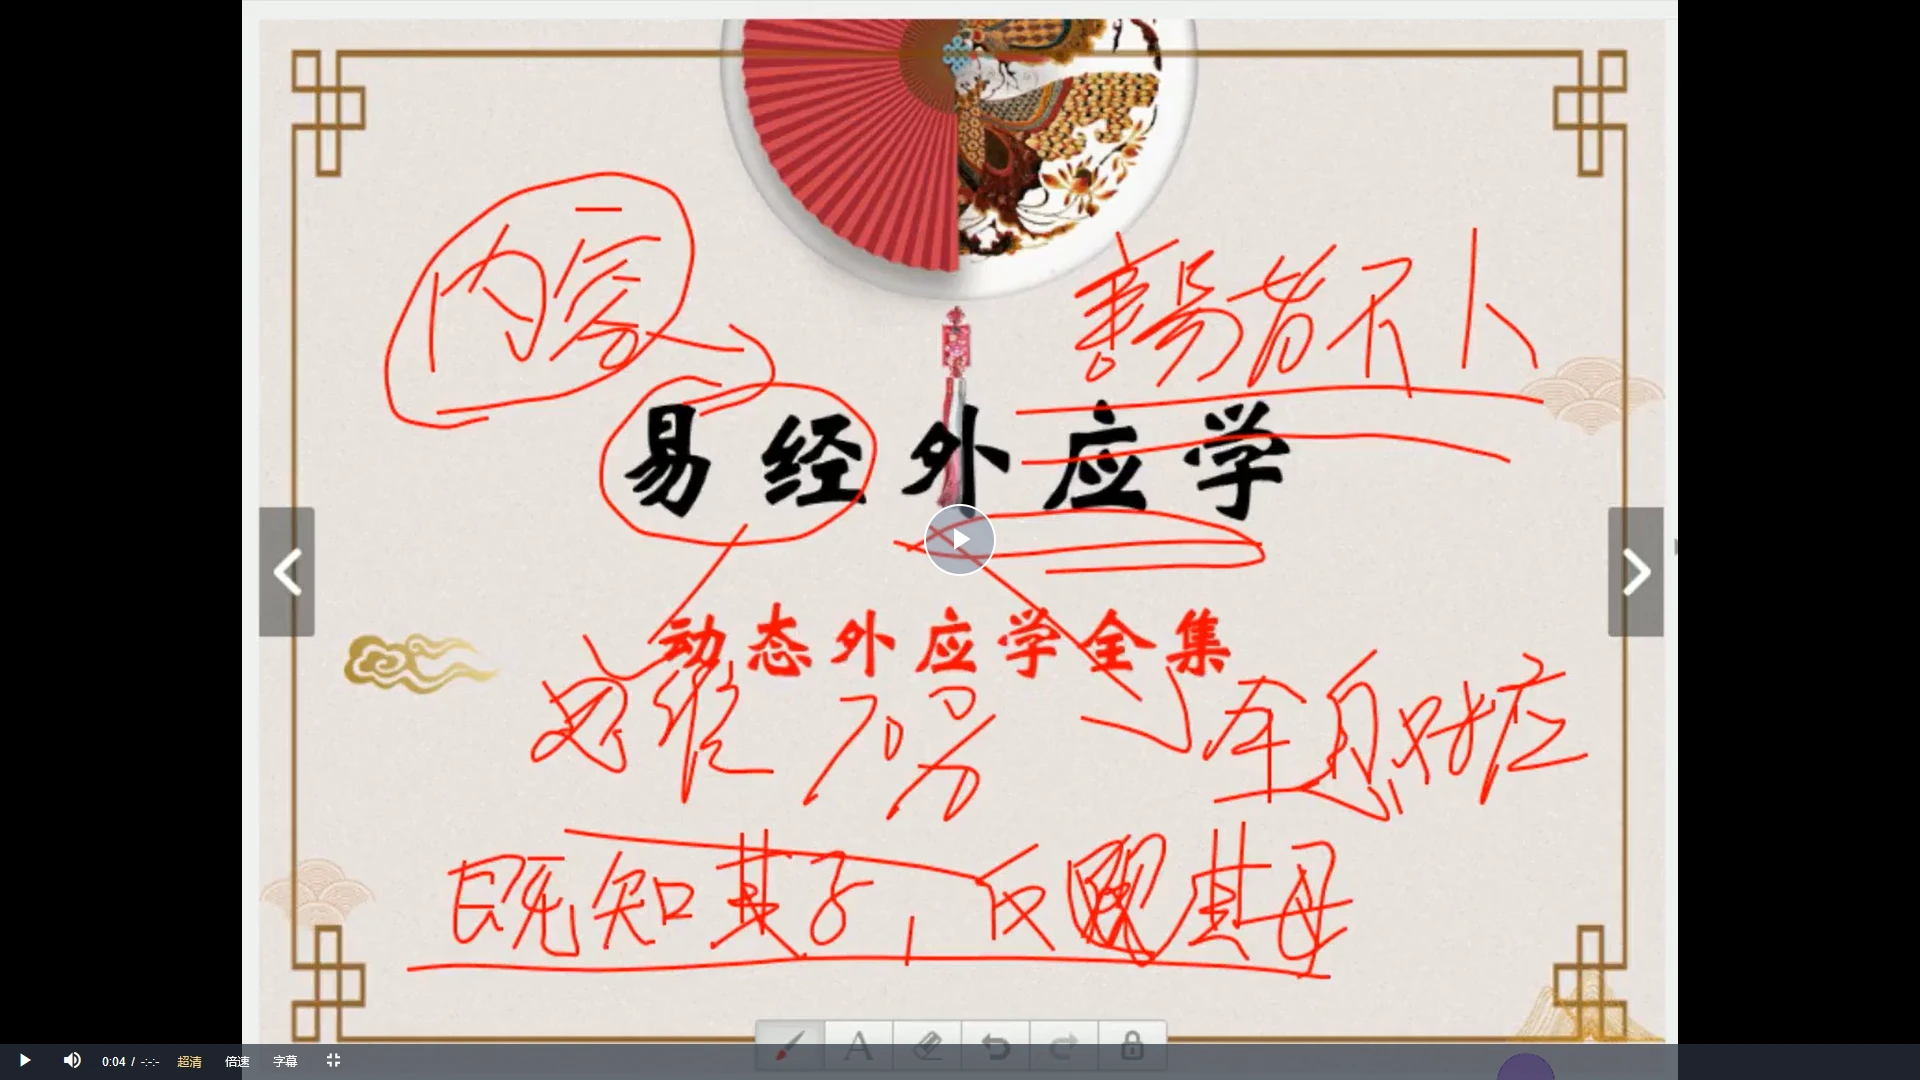 内容
善易者不卜
易经外应学
动态外应学全集
思维 方
全息对应
既知其子，反
其母
A
0:04 / -:-:- 超清 倍速 字幕